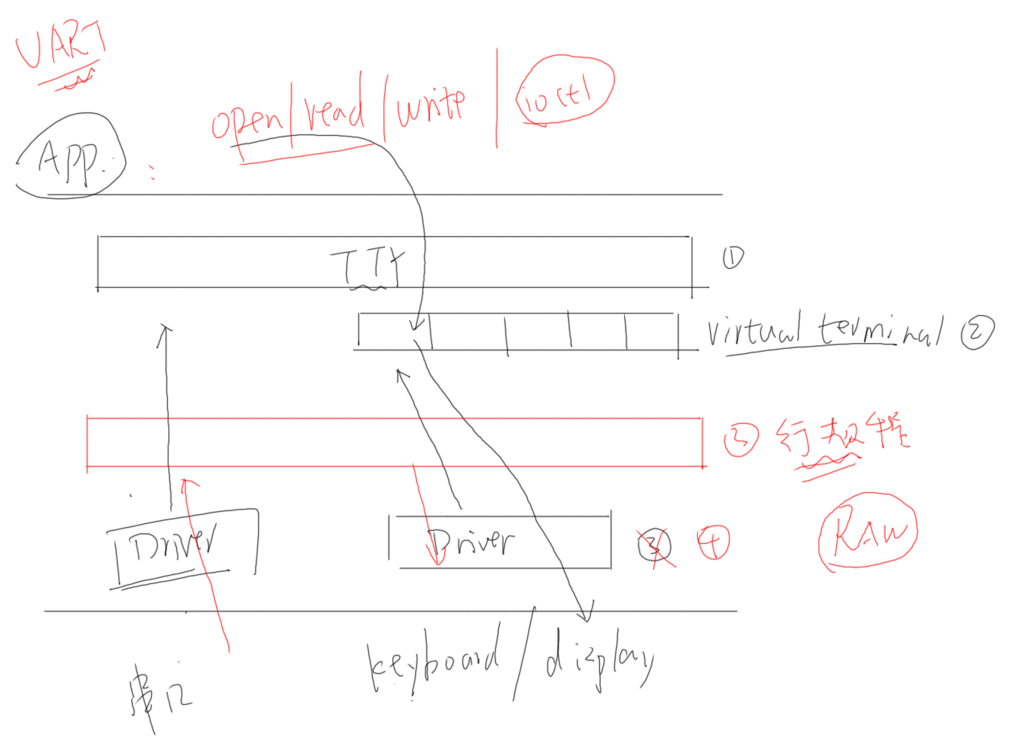 UART
open/read/write/ioctl
App. :
TTY ①
virtual terminal ②
③ 行规程
Driver Driver ③ ④ RAW
串口 keyboard/display